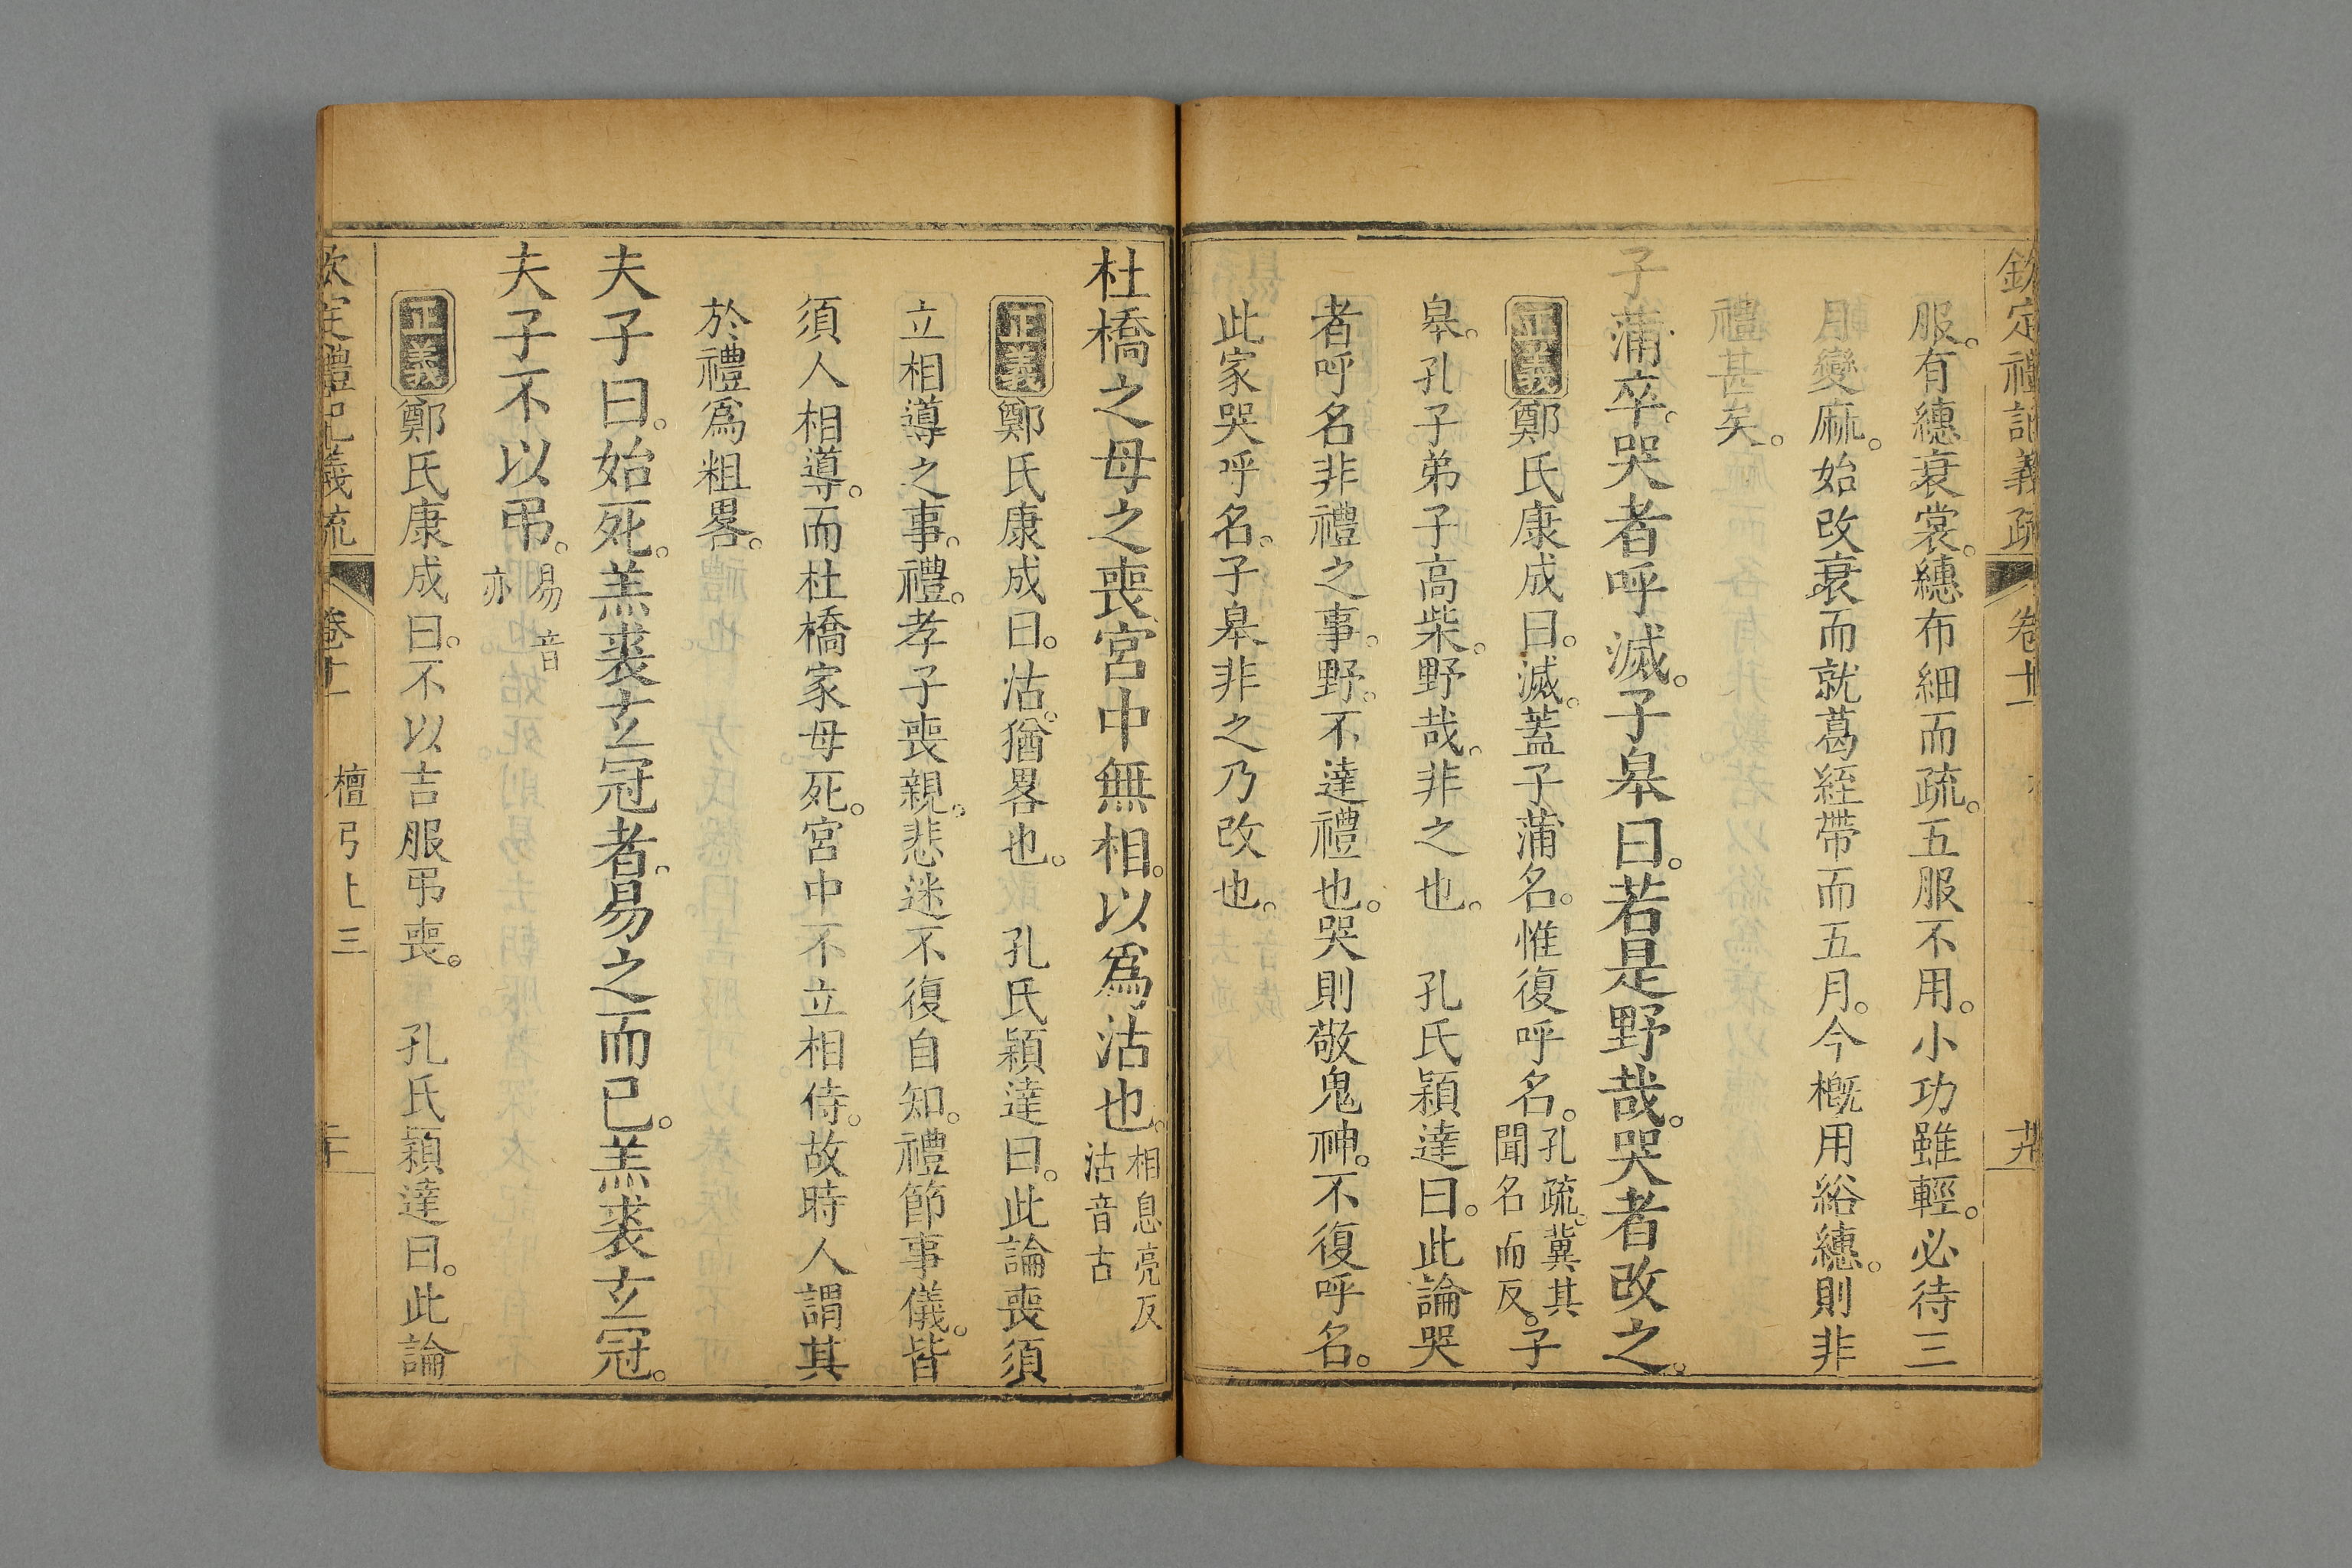 欽定禮記義疏 卷十一 丗
服。有繐衰裳。繐布細而疏。五服不用。小功雖輕。必待三
月變麻。始改衰而就葛絰帶而五月。今槪用綌繐。則非
禮甚矣。
子蒲卒。哭者呼滅。子臯曰。若是野哉。哭者改之。
正義鄭氏康成曰。滅。蓋子蒲名。惟復呼名。孔疏。冀其聞名而反。子
臯。孔子弟子高柴。野哉。非之也。 孔氏穎達曰。此論哭
者呼名非禮之事。野。不達禮也。哭則敬鬼神。不復呼名。
此家哭呼名。子臯非之乃改也。
杜橋之母之喪宮中無相。以爲沽也。相息亮反沽音古
正義鄭氏康成曰。沽。猶畧也。 孔氏穎達曰。此論喪須
立相導之事。禮。孝子喪親。悲迷不復自知。禮節事儀。皆
須人相導。而杜橋家母死。宮中不立相侍。故時人謂其
於禮爲粗畧。
夫子曰。始死。羔裘玄冠者。易之而已。羔裘玄冠。
夫子不以弔。易音亦
正義鄭氏康成曰。不以吉服弔喪。 孔氏穎達曰。此論
欽定禮記義疏 卷十一 檀弓上三